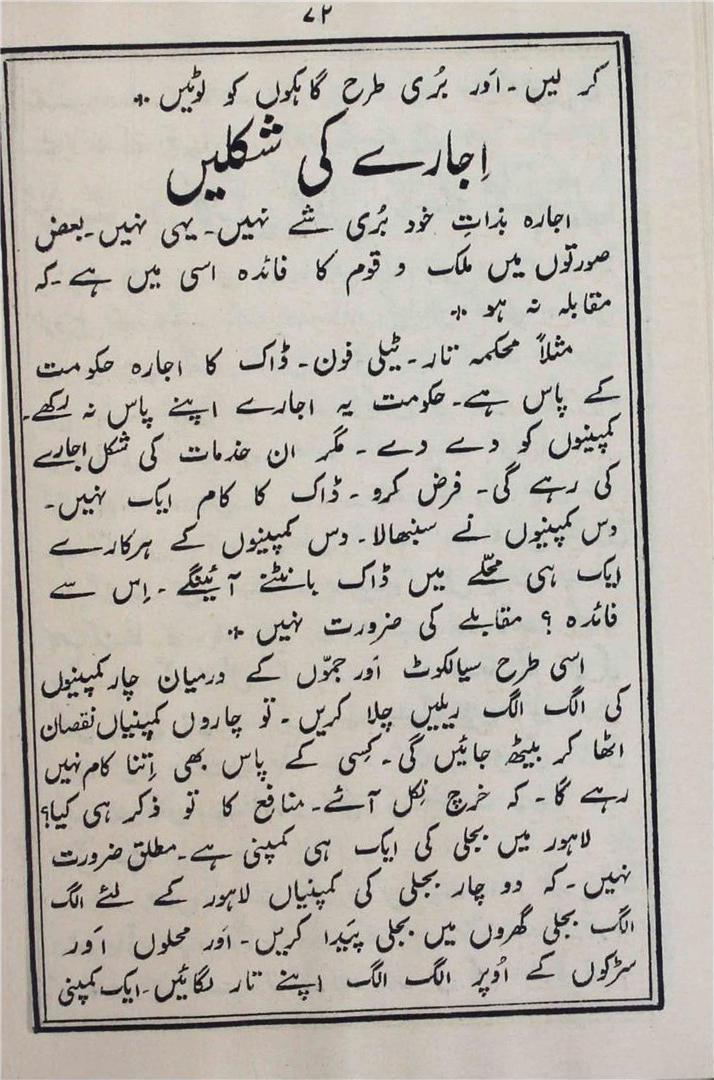 ۷۲
کر لیں ۔ اَور بُری طرح گاہکوں کو لوٹیں ۔
اِجارے کی شکلیں
اجارہ بذاتِ خود بُری شے نہیں ۔ یہی نہیں ۔ بعض
صورتوں میں ملک و قوم کا فائدہ اسی میں ہے ۔ کہ
مقابلہ نہ ہو ۔
مثلاً محکمہ تار ۔ ٹیلی فون ۔ ڈاک کا اجارہ حکومت
کے پاس ہے ۔ حکومت یہ اجارے اپنے پاس نہ رکھے ۔
کمپنیوں کو دے دے ۔ مگر ان خدمات کی شکل اجارے
کی رہے گی ۔ فرض کرو ۔ ڈاک کا کام ایک نہیں ۔
دس کمپنیوں نے سنبھالا ۔ دس کمپنیوں کے ہرکارے
ایک ہی محلّے میں ڈاک بانٹنے آئینگے ۔ اِس سے
فائدہ ؟ مقابلے کی ضرورت نہیں ۔
اسی طرح سیالکوٹ اَور جموّں کے درمیان چار کمپنیوں
کی الگ الگ ریلیں چلا کریں ۔ تو چاروں کمپنیاں نقصان
اٹھا کر بیٹھ جائیں گی ۔ کِسی کے پاس بھی اِتنا کام نہیں
رہے گا ۔ کہ خرچ نِکل آئے ۔ منافع کا تو ذکر ہی کیا؟
لاہور میں بجلی کی ایک ہی کمپنی ہے ۔ مطلق ضرورت
نہیں ۔ کہ دو چار بجلی کی کمپنیاں لاہور کے لئے الگ
الگ بجلی گھروں میں بجلی پَیدا کریں ۔ اَور محلوں اَور
سڑکوں کے اُوپر الگ الگ اپنے تار لگائیں ۔ ایک کمپنی